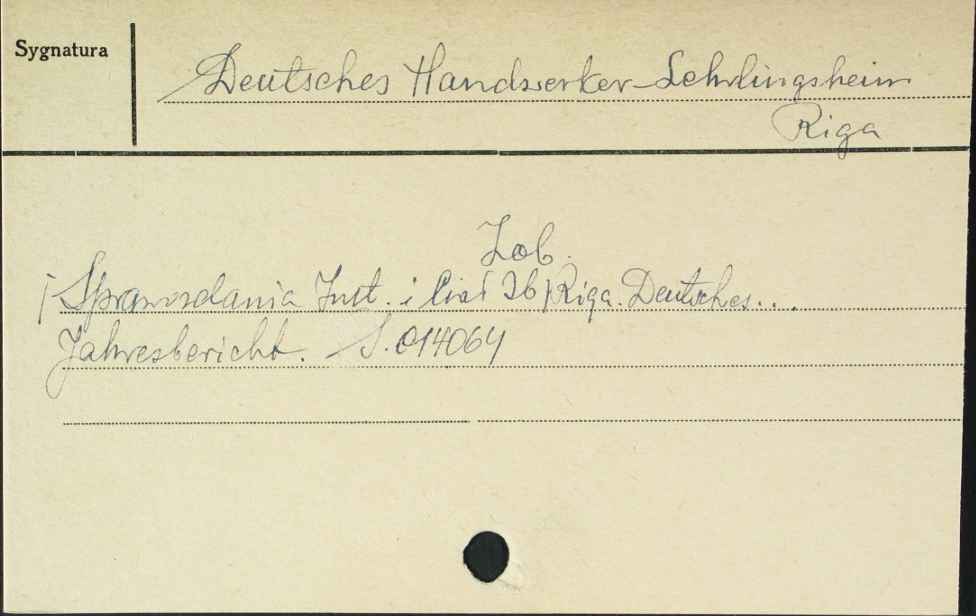 Sygnatura
Deutsches Handwerker-Lehrlingsheim
Riga
Zob.
Sprawozdania Inst. i Ciał 26) Riga. Deutsches...
Jahresbericht. S. 014064